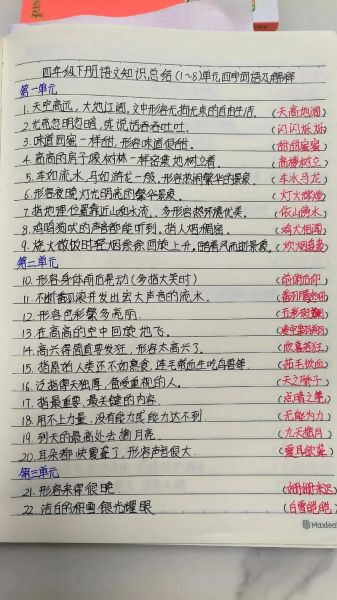 四年级下册语文知识总结(1~8)单元四字词语及解释
第一单元
1.天空高远,大地辽阔,文中形容无拘无束的自由生活. (天高地阔)
2.光亮忽明忽暗,或说话吞吞吐吐. (闪闪烁烁)
3.味道同蜜一样甜,形容味道很甜. (甜甜蜜蜜)
4.高高的房子像树林一样密集地树立着. (高楼树立)
5.车如流水,马如游龙一般,形容热闹繁华的景象. (车水马龙)
6.形容夜晚灯光明亮的繁华景象. (灯火辉煌)
7.指地理位置靠近山如水流,多形容自然环境优美. (依山傍水)
8.鸡鸣狗吠的声音都能听到,指人烟稠密. (鸡犬相闻)
9.烧火做饭时轻烟袅袅回旋上升,随着风而逝景象. (炊烟袅袅)
第二单元
10.形容身体前后晃动(多指大笑时) (前俯后仰)
11.不断翻滚并发出宏大声音的流水. (翻滚)
12.形容色彩繁多亮丽. (五彩斑斓)
13.在高高的空中回旋地飞.
14.高兴得简直要发狂,形容太高兴了. (欣喜若狂)
15.指原始人类还不知熟食,连毛带血生吃鸟兽等. (茹毛饮血)
16.泛指得天独厚,备受重视的人. (天之骄子)
17.指最重要、最关键的内容. (点睛之笔)
18.用不上力量,没有能力或能力达不到. (无能为力)
19.到天的最高处去摘月亮. (九天揽月)
20.耳朵都快震聋了,形容声音很大. (震耳欲聋)
第三单元
21.形容来得很晚. (姗姗来迟)
22.洁白的积雪银光耀眼 (白雪皑皑)
Maxleaf